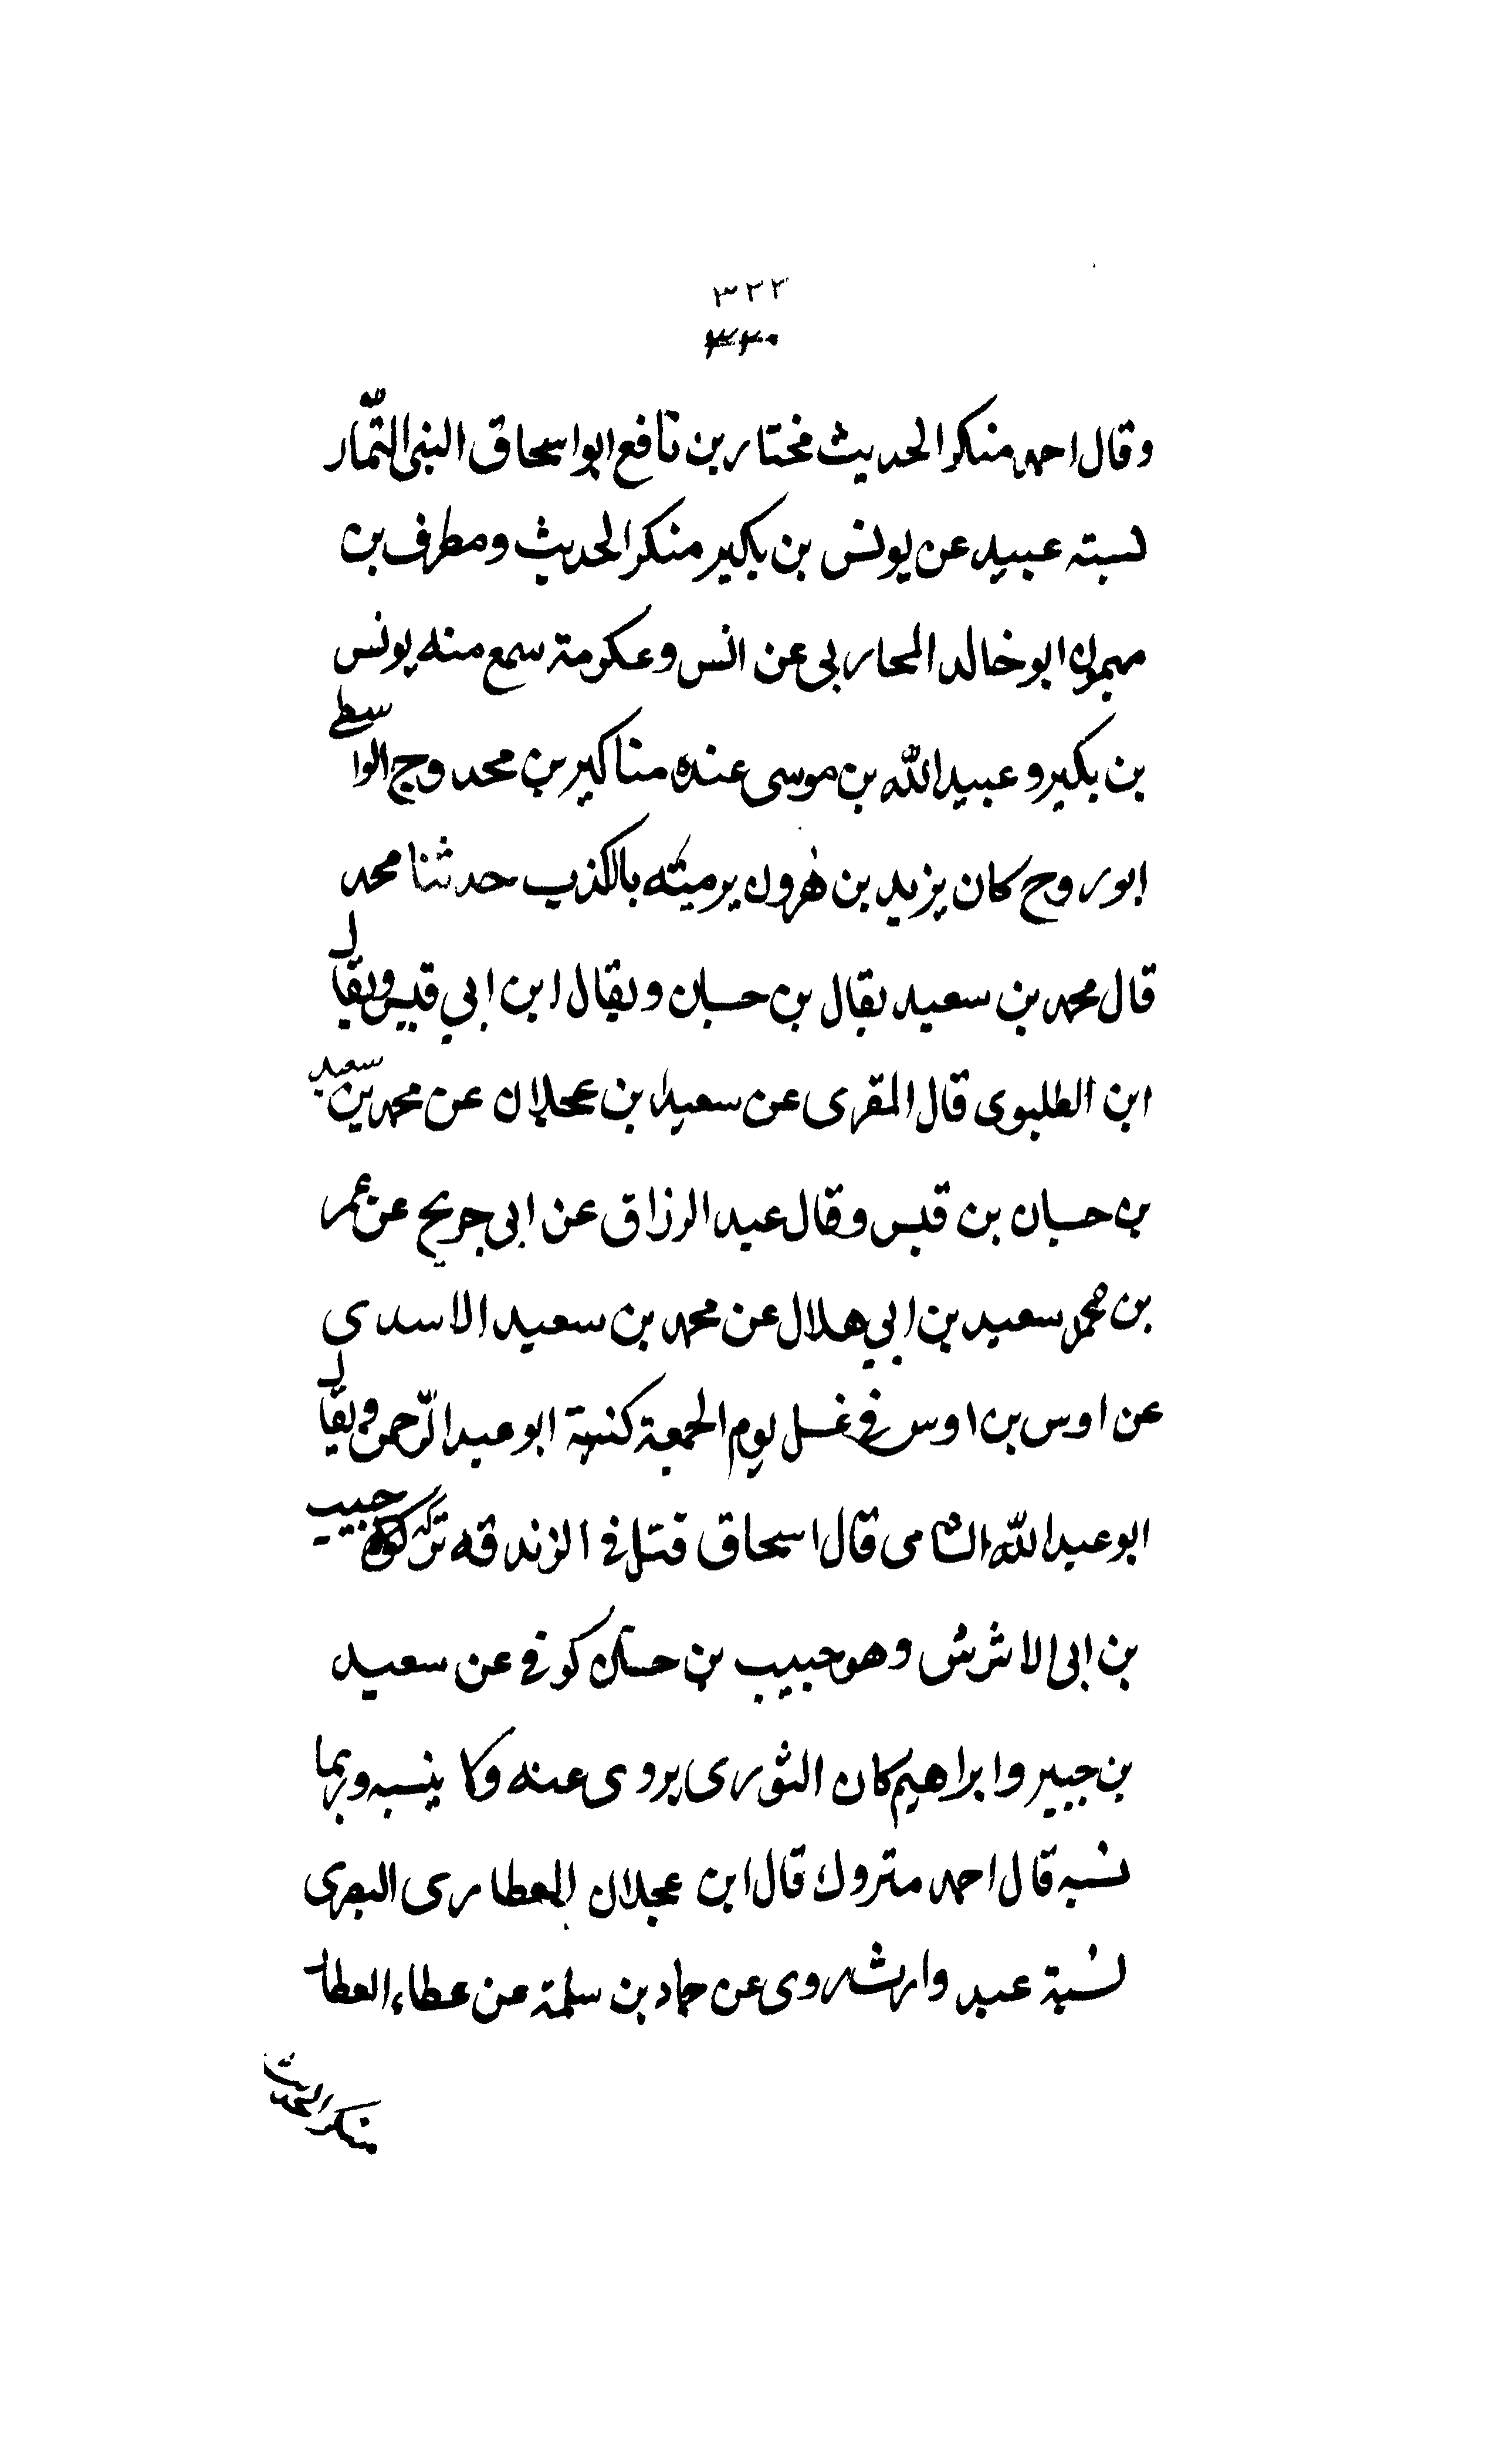 ٣٢٢
٣٢٠
وقال احمد منكر الحديث مختار بن نافع ابو اسحاق التيمى التمّار
نسبته عبيد عن يونس بن بكير منكر الحديث ومطرف بن
ميمون ابو خالد المحاربى عن انس وعكرمة سمع منه يونس
بن بكير وعبيد الله بن موسى عنده مناكير بن محدوج الواسطے
ابو روح كان يزيد بن هٰرون يرميه بالكذب حدثنا محمد
قال محمد بن سعيد يقال بن حسان ويقال ابن ابي قيس ويقال
ابن الطلبوى قال المقرى عن سعيد بن عجلان عن محمد بن سعيد
بن حسان بن قيس وقال عبد الرزاق عن ابى جريج عن عمر
بن محمد سعيد بن ابي هلال عن محمد بن سعيد الاسدى
عن اوس بن اوس في غسل يوم الجمعة كنية ابو عبد الرّحمن ويقال
ابو عبد اللّه الشامى قال اسحاق قتل فى الزندقه تركه حبيب
بن ابى الاشرش وهو حبيب بن حسان كوفى عن سعيد
بن جبير وابراهيم كان الثورى يروى عنه ولا ينسبه وربما
نسبه قال احمد متروك قال ابن عجلان العطارى البصرى
نسبة عبد وارث روى عن حماد بن سلمة عن عطاء العطار
منكر الحديث